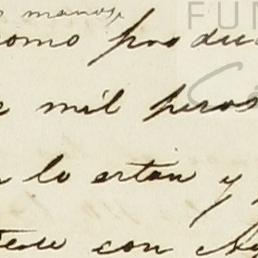 manos
como produ
mil pesos
lo estan y
con
FUN